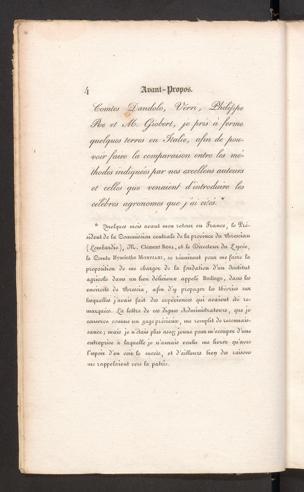 4
Avant-Propos.
Comtes Dandolo, Verri, Philippe
Re et M. Giobert, je pris à ferme
quelques terres en Italie, afin de pou-
voir faire la comparaison entre les mé-
thodes indiquées par nos excellens auteurs
et celles que venaient d'introduire les
célèbres agronomes que j'ai cités. *
* Quelques mois avant mon retour en France, le Pré-
sident de la Commission centrale de la province du Brescian
(Lombardie), M. Clément et le Directeur du Lycée,
le Comte Hyacinthe se réunirent pour me faire la
proposition de me charger de la fondation d'un Institut
agricole dans un lieu délicieux appelé dans les
environs de Brescia, afin d'y propager les théories sur
lesquelles j'avais fait des expériences qui avaient été re-
marquées. La lettre de ces dignes Administrateurs, que je
conserve comme un gage précieux, me remplit de reconnais-
sance; mais je n'étais plus assez jeune pour m'occuper d'une
entreprise à laquelle je n'aurais voulu me livrer qu'avec
l'espoir d'en voir le succès, et d'ailleurs bien des raisons
me rappelaient vers la patrie.